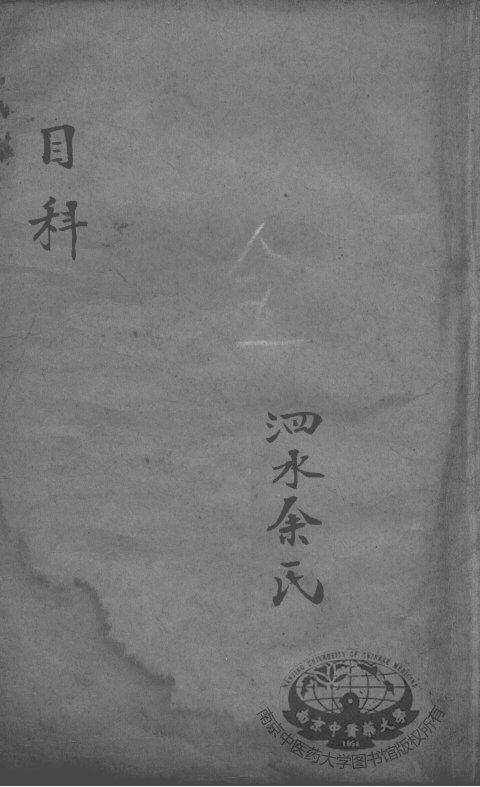 目科
全
泗水余氏
NANJING UNIVERSITY OF CHINESE MEDICINE
南京中醫藥大學
1954
南京中医药大学图书馆版权所有